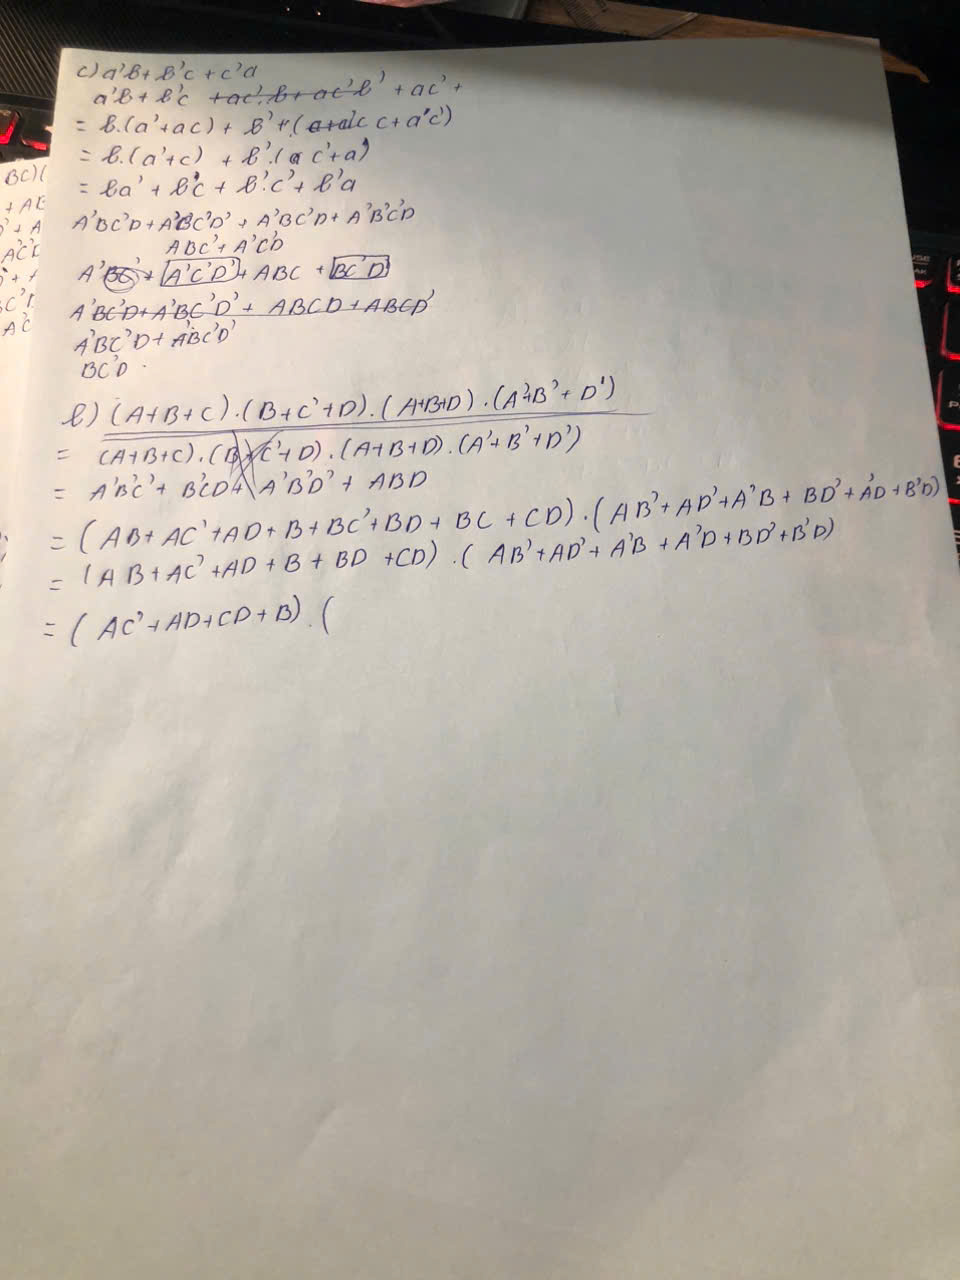 c) a'b + b'c + c'a
a'b + b'c + ac'.b + ac'b' + ac' +
= b.(a' + ac) + b' + (a+a'c c + a'c')
= b.(a' + c) + b'.(c' + a)
= ba' + bc + b'.c' + b'a
A'BC'D + A'BC'D' + A'BC'D + A'B'C'D
ABC' + A'C'D
A'BC' + A'C'D' + ABC + BC'D
A'BC'D + A'BC'D' + ABCD + ABCD'
A'BC'D + A'BC'D'
BC'D .
b) (A+B+C).(B+C'+D).(A+B+D).(A'+B'+D')
= (A+B+C).(B+C'+D).(A+B+D).(A'+B'+D')
= A'B'C' + B'CD' + A'B'D' + ABD
= (AB + AC' + AD + B + BC' + BD + BC + CD).(AB' + AD' + A'B + BD' + A'D + B'D)
= (AB + AC' + AD + B + BD + CD).(AB' + AD' + A'B + A'D + BD' + B'D)
= (AC' + AD + CD + B).(
BC)(
+ AB
+ A
A'C'D
+ A
BC'D
A'C